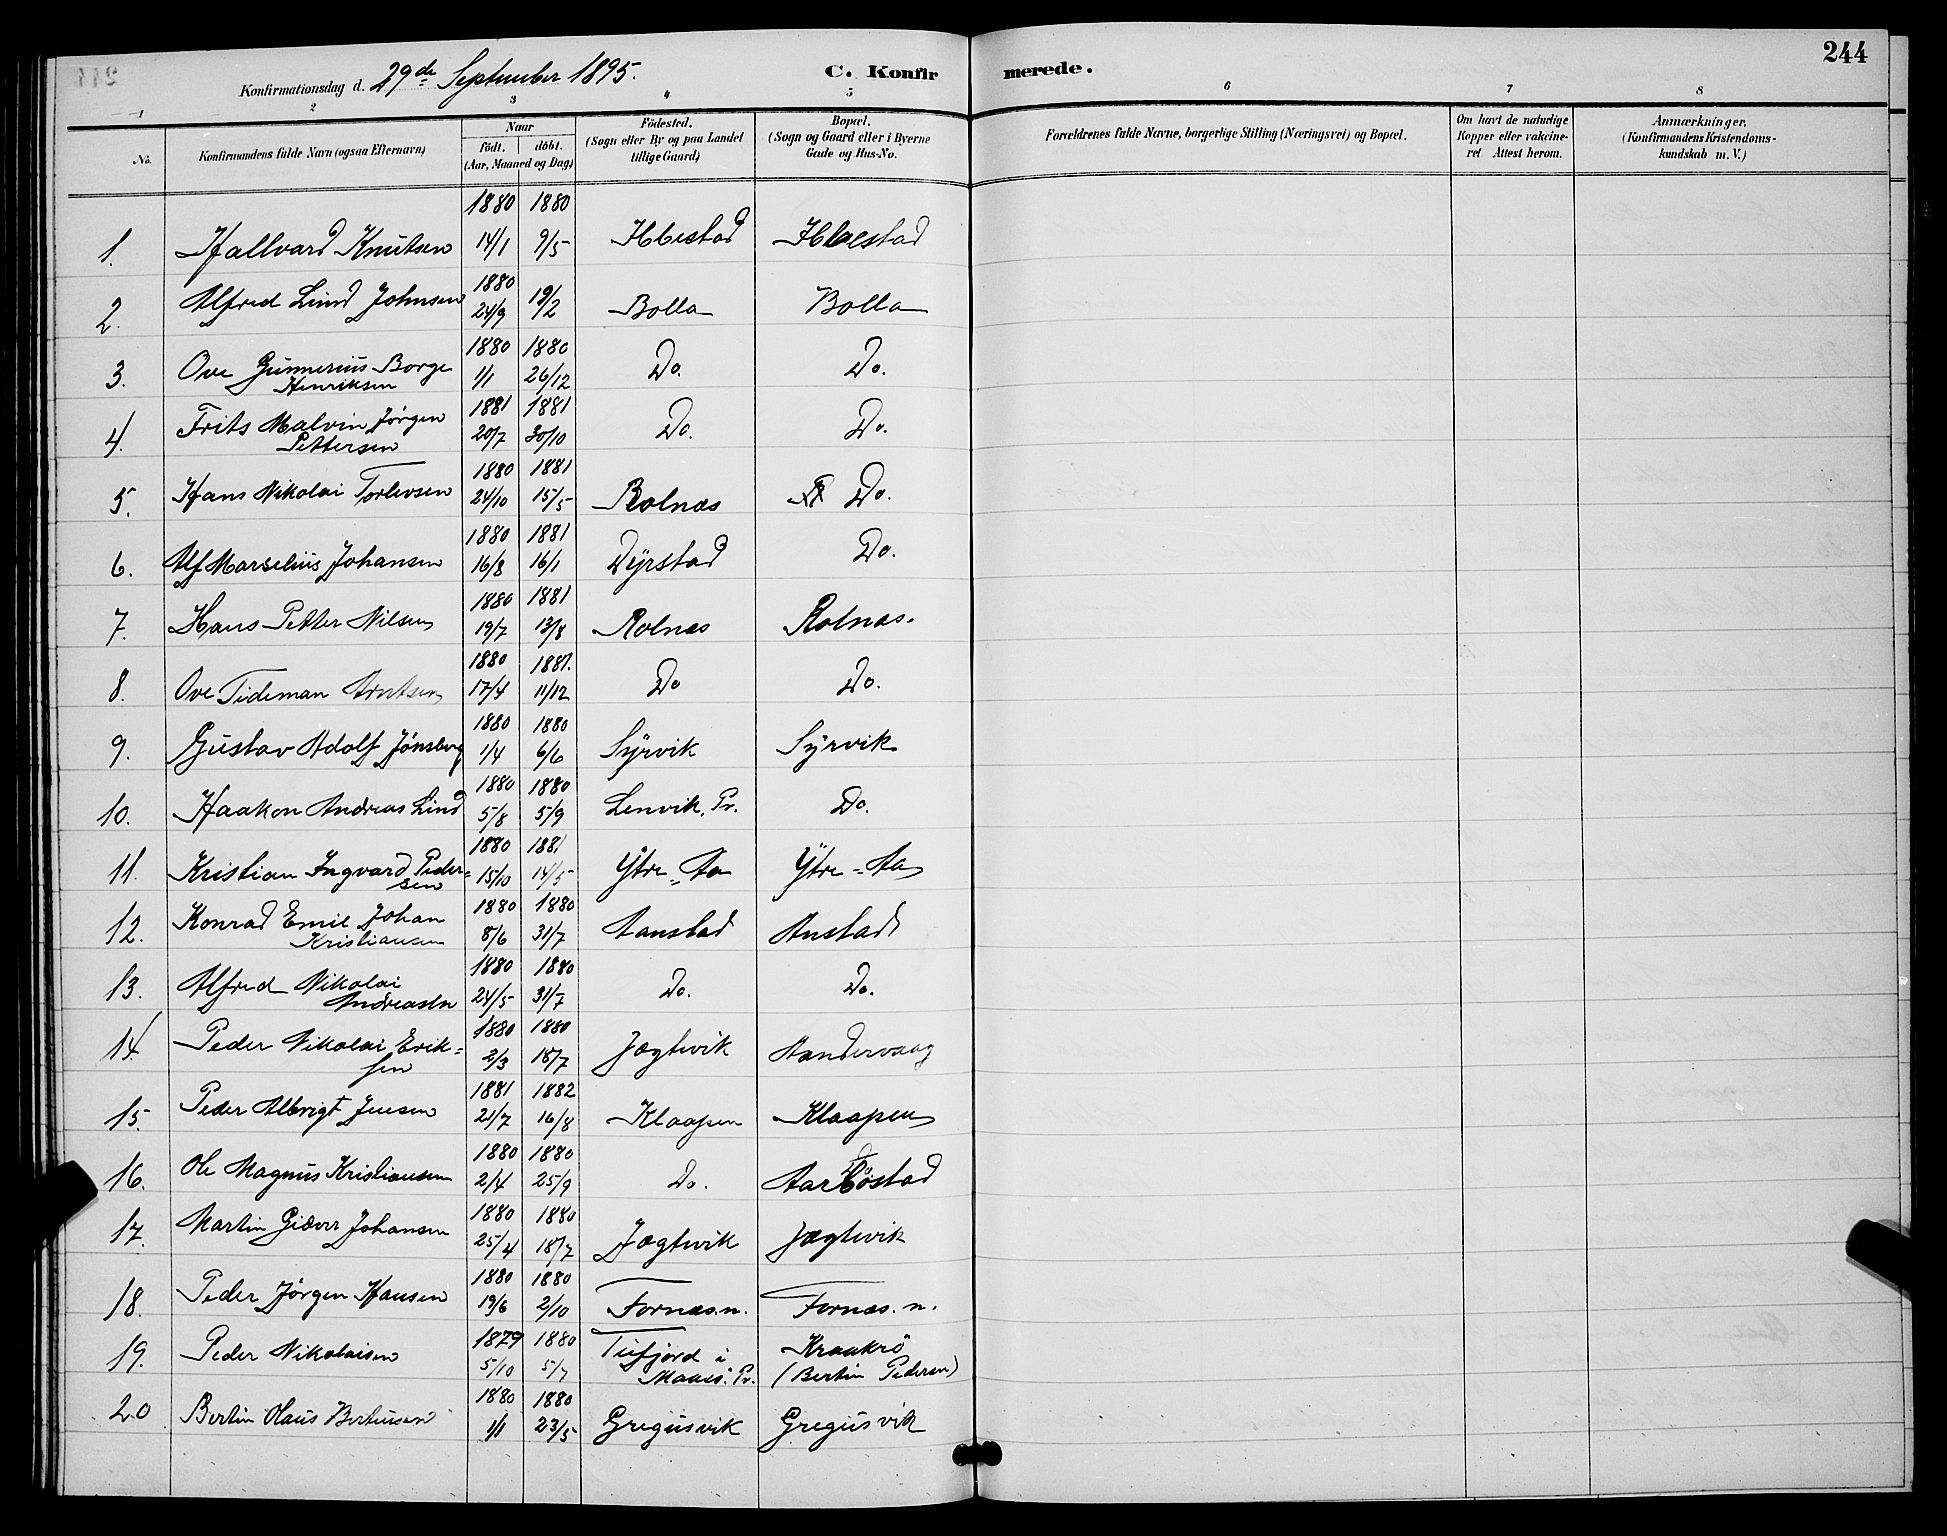 Konfirmationsdag d. 29de September 1895.
C. Konfirmerede.
244
1 2 3 4 5 6 7 8
No. Konfirmandens fulde Navn (ogsaa Efternavn) Naar født. døbt. (Aar, Maaned og Dag) Fødested. (Sogn eller By og paa Landet tillige Gaard) Bopæl. (Sogn og Gaard eller i Byerne Gade og Hus-No. Forældrenes fulde Navne, borgerlige Stilling (Næringsvei) og Bopæl. Om havt de naturlige Kopper eller vakcineret Attest herom. Anmærkninger, (Konfirmandens Kristendomskundskab m. V.)
1880 1880
1. Hallvard Knutsen 14/1 9/5 Ibbestad Ibbestad
1880
2. Alfred Lind Johnsen 24/9 19/2 Bolla Bolla
1880 1880
3. Ove Gunnerius Borge Henriksen 1/1 26/12 Do. Do.
1881 1881
4. Frits Malvin Jørgen Pettersen 20/7 30/10 Do. Do.
1880 1881
5. Hans Nikolai Torlevsen 24/10 15/5 Rolnæs Do.
1880 1881
6. Alf Marselius Johansen 16/8 16/1 Dyrstad Do.
1880 1881
7. Hans Petter Nilsen 19/7 13/8 Rolnæs Rolnæs.
1880 1881.
8. Ove Tideman Arntsen 17/4 11/12 Do Do.
1880 1880
9. Gustav Adolf Jønsberg 1/4 6/6 Sørvik Sørvik
1880 1880
10. Haakon Andreas Lind 5/8 5/9 Lenvik, Pr. Do.
1880 1881
11. Kristian Ingvard Pedersen 15/10 14/5 Ytre-Aa Ytre-Aa
1880 1880
12. Konrad Emil Johan Kristiansen 8/6 31/7 Aanstad Anstad
1880 1880
13. Alfred Nikolai Andreasen 24/5 31/7 Do. Do.
1880 1880
14. Peder Nikolai Eriksen 2/3 18/7 Jægtvik Handervaag
1881 1882
15. Peder Albrigt Jensen 21/7 16/8 Klaapen Klaapen
1880 1880
16. Ole Magnus Kristiansen 2/4 25/9 Do. Aarbøstad
1880 1880
17. Martin Giæver Johansen 25/4 18/7 Jægtvik Jægtvik
1880 1880
18. Peder Jørgen Hansen 19/6 2/10 Fornæs. n. Fornæs. n.
1879 1880
19. Peder Nikolaisen 5/10 5/7 Tufjord i Maasö. Pr. Kraakrö (Bertin Pedersen)
1880 1880
20 Bertin Olaus Bertinsen 1/1 23/5 Gregusvik Gregusvik